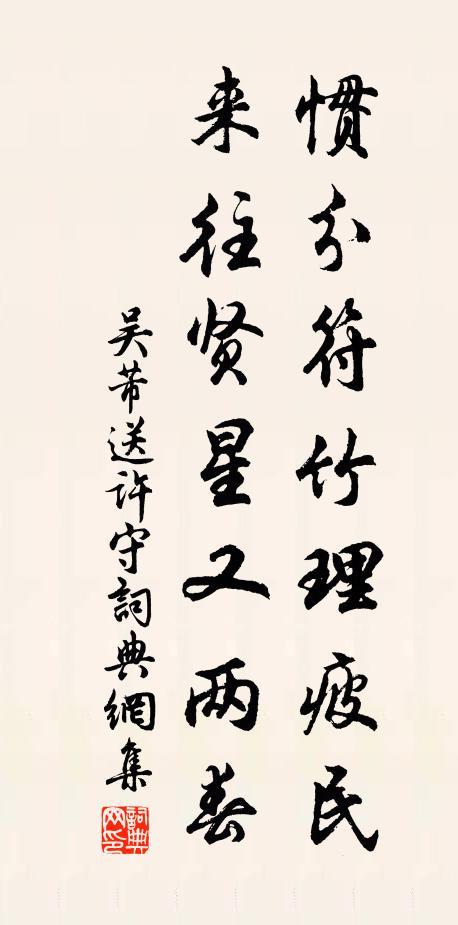 惯分符竹理疲民
来往贤星又两春
吴芾送许守词典網集
詞典网印